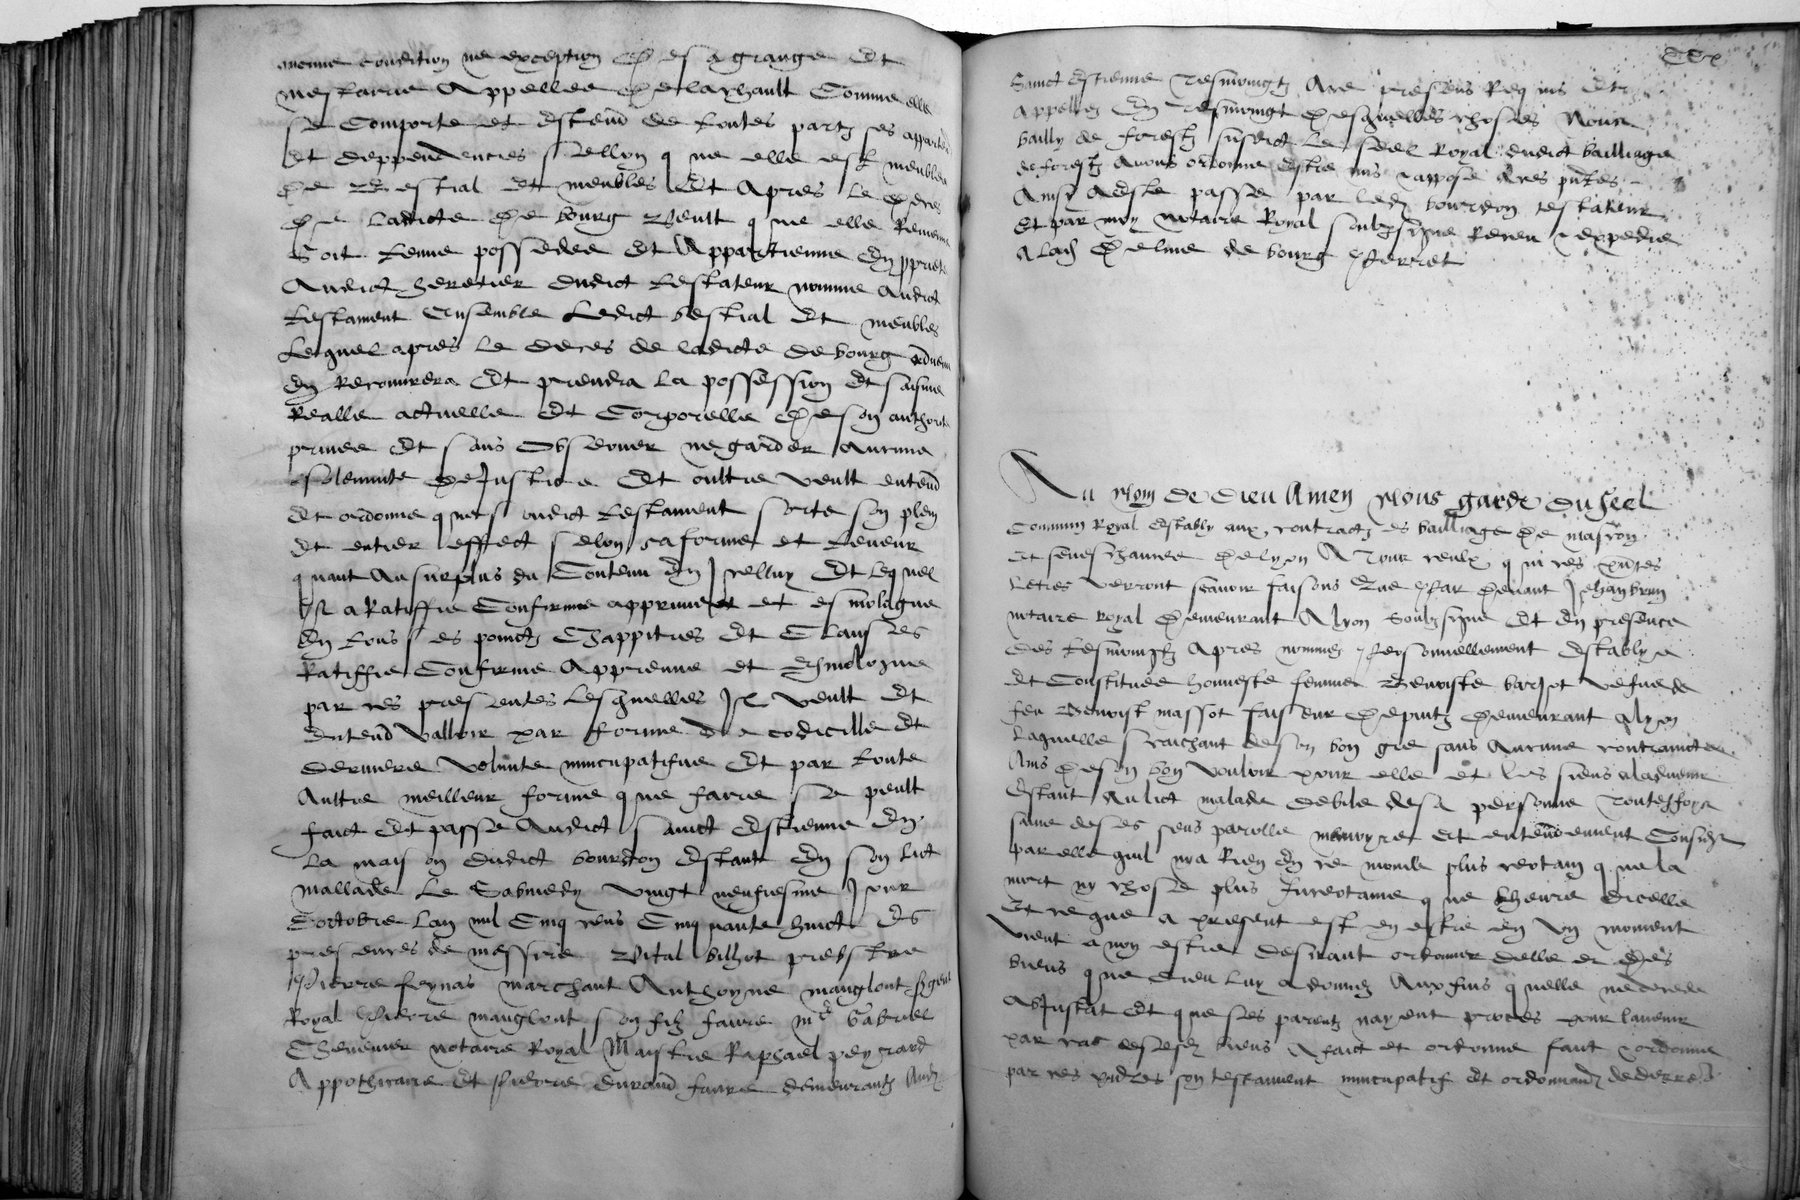 aucune condition ne exception de sa grange et
mestairie appellee de layhault comme elle
se comporte et estend de toutes partz ses
et deppendencies sellon que elle est meublee
de bestial et meubles et apres le deces
de ladicte de bourg veult que elle
soit tenue possedee et appartienne en
audict heretier dudict testateur nomme audict
testament ensemble ledict bestial et meubles
lequel apres le deces de ladicte de bourg
en recouvrera et prendra la possession et saisine
realle actuelle et corporelle de son authorite
privee et sans observer ne garder aucune
solemnite de justice et oultre veult entend
et ordonne que sondict testament sorte son plein
et entier effect selon sa forme et teneur
quant au surplus du contenu en icelluy et lequel
il a ratiffie confirme approuve et esmologue
en tous ses poinctz chappitres et clauses
ratiffie confirme appreuve et esmologue
par ces presentes lesquelles il veult et
entend valloir par forme de codicille et
derniere volunte nuncupatifve et par toute
aultre meilleur forme que faire se peult
faict et passe audict sainct estienne en
la maison dudict bourdon estant en son lict
mallade le vingt neufiesme jour
d'octobre lan mil cinq cens cinquante huict es
presences de messire vital bilhot prebstre
pierre feynas marchant anthoyne mauglont sergent
royal pierre mauglont son filz faure me gabriel
notaire royal maistre raphael peyrard
appothicaire et pierre durand faure demeurantz aud
sainct estienne tesmoingtz ace presens requis et
appellez en tesmoingt desquelles choses nous
bailly de forestz susdict le scel royal dudict bailliage
de forestz avons ordonne estre mis et appose a ces pntes
ainsi a este passe par led bourdon testateur
et par moy notaire royal soubzsigne receu et expedie
a lad de bourg
Au nom de dieu amen nous garde du scel
commun royal estably aux contractz es bailliage de mascon
et seneschaucee de lyon a tous ceulx qui ces pntes
lettres verront scavoir faisons que par devant jehan brun
notaire royal demeurant a lyon soubzsigne et en presence
des tesmoingtz apres nommez personnellement establye
et constituee honneste femme benoiste barjot vefve de
feu benoist massot faiseur de demeurant a lyon
laquelle saichant de son bon gre sans aucune contraincte
ains de son bon vouloir pour elle et les siens aladvenir
estant au lict malade debile de sa personne touteffoys
saine de ses sens parolle memoyre et entendement considere
par elle quil nya rien en ce monde plus certain que la
mort ny chose plus incertaine que lheure dicelle
et ce que a present est en estre en ung moment
vient a non estre desirant ordonner delle et des
biens que dieu luy a donnez aux fins quelle ne decede
abintestat et que ses parentz nayent proces pour ladvenir
par cas de sesd biens a faict et ordonne faict et ordonne
par ces pntes son testament nuncupatif et